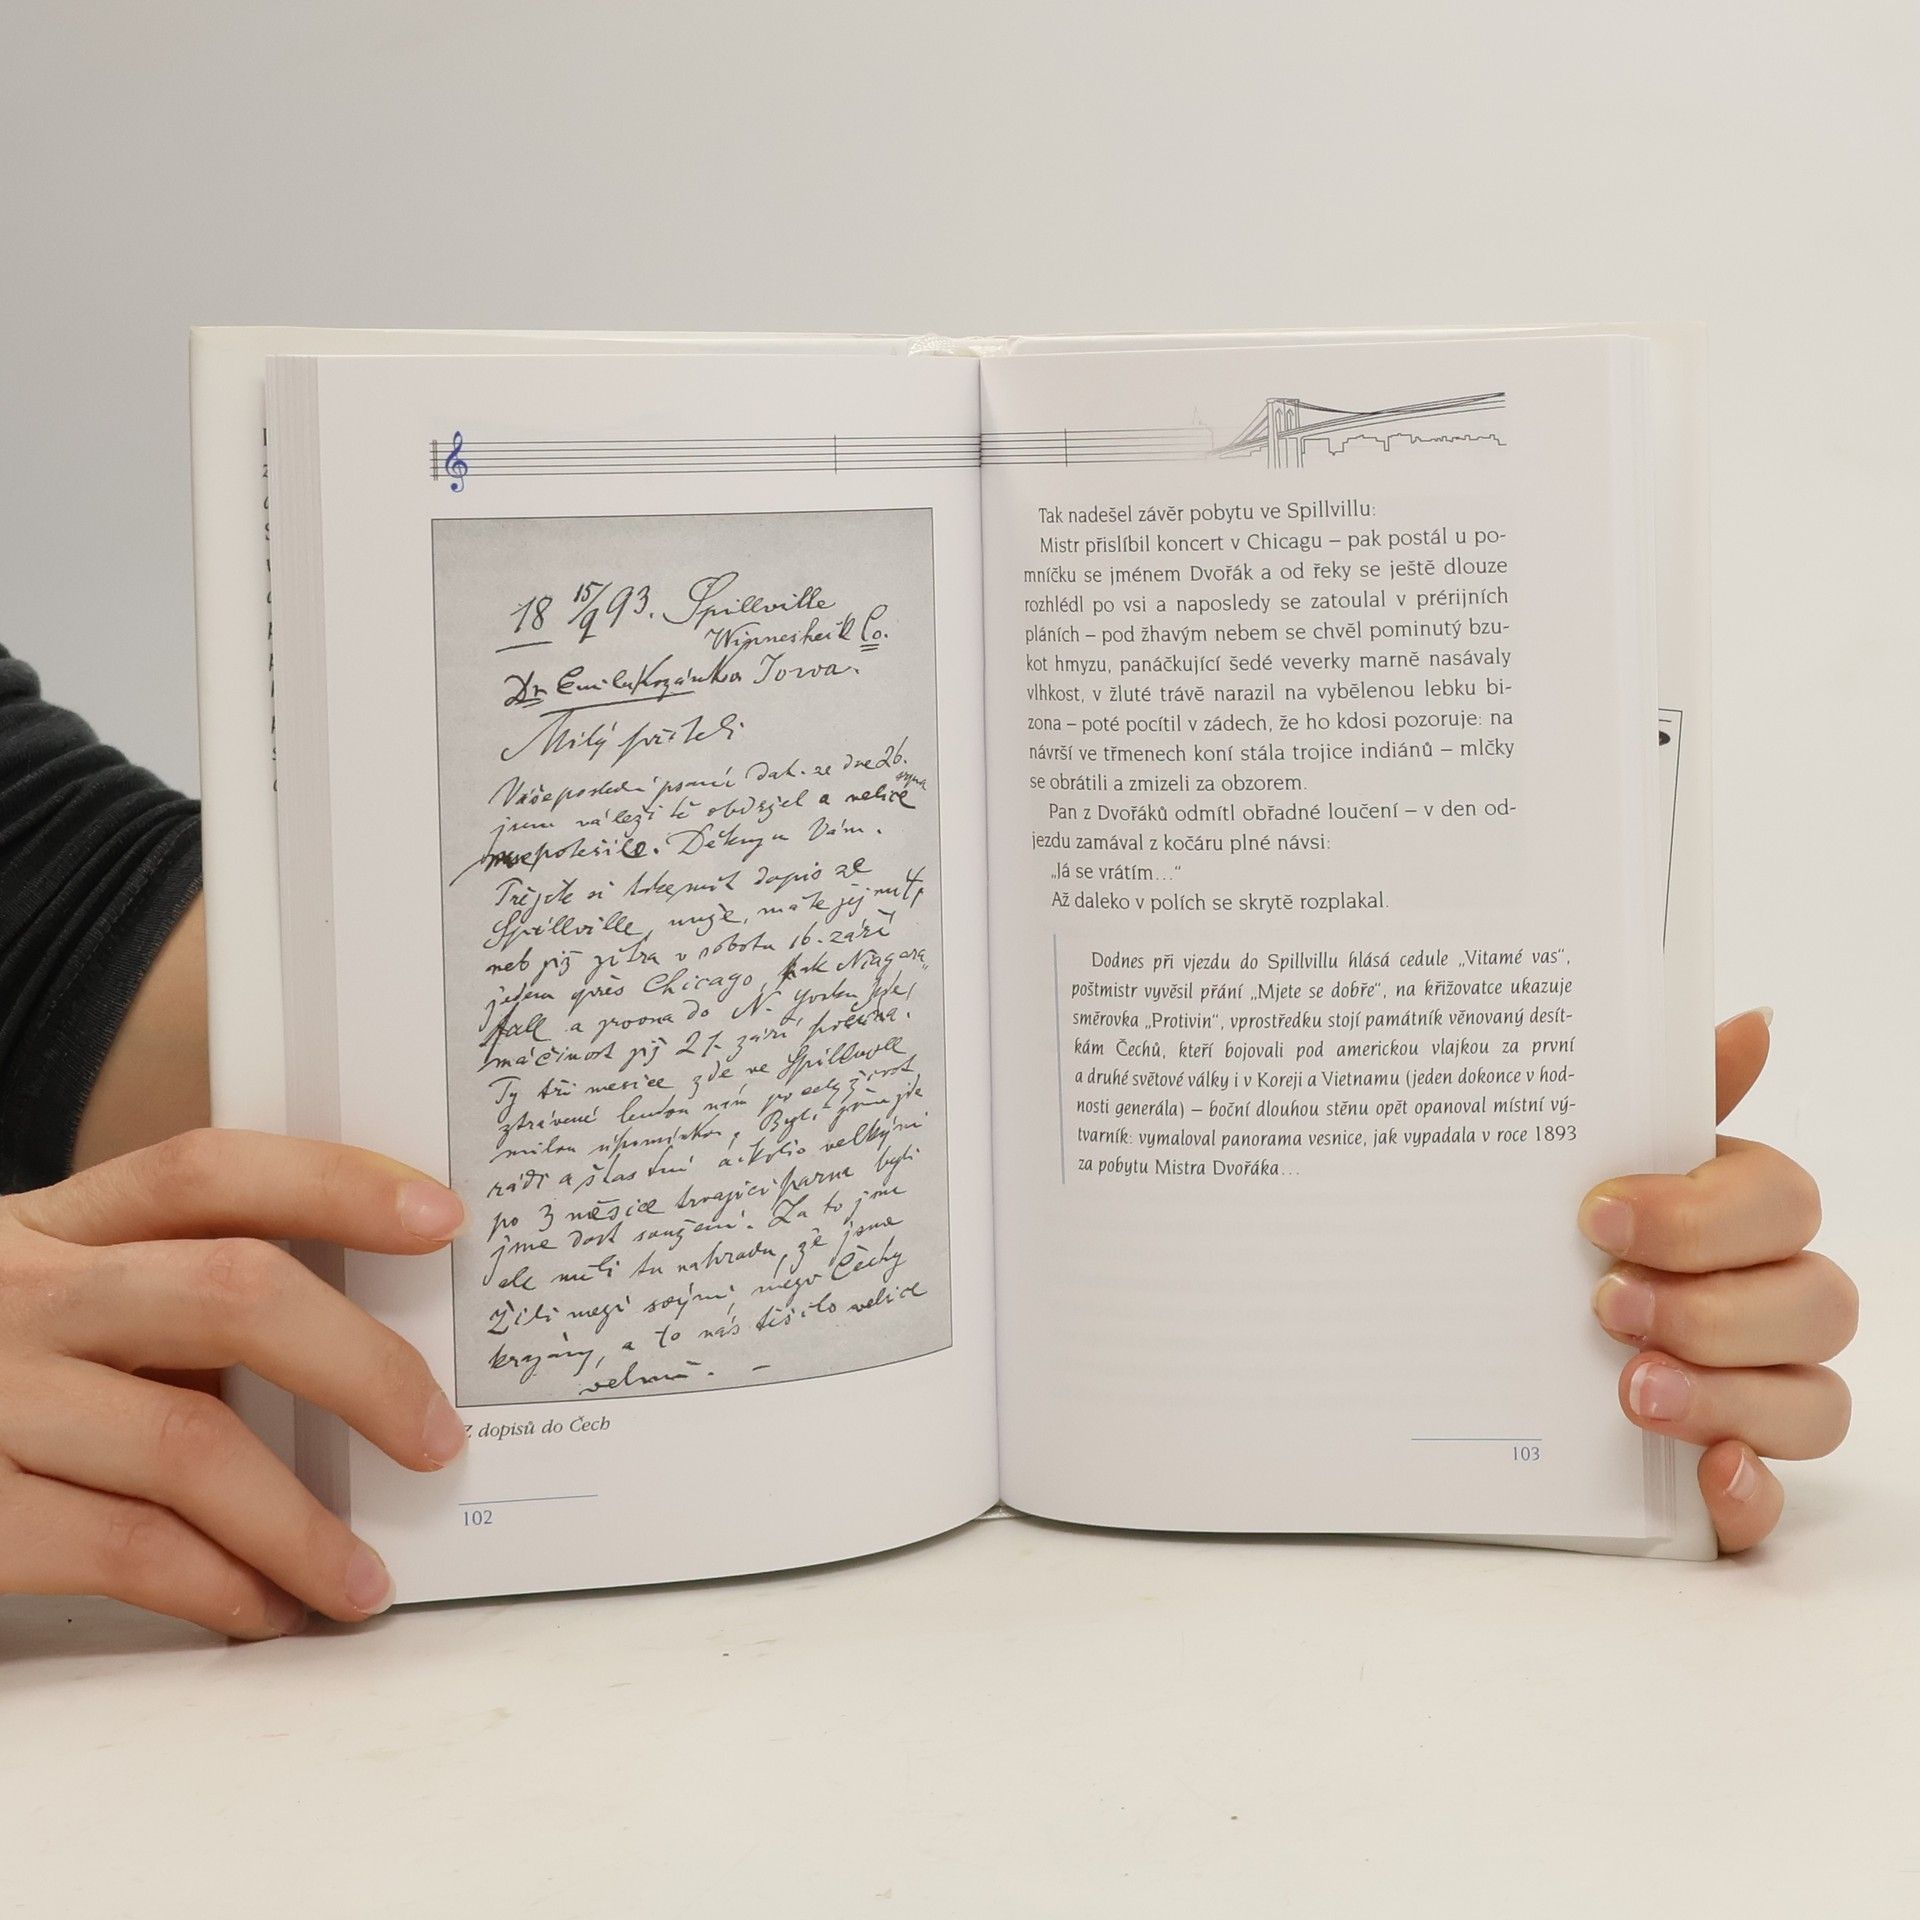 18 15/9 93. Spillville
Winnesheik Co.
Dr Emil Kozánka Iowa.
Milý příteli
Vaše poslední psaní dat. ze dne 26. srpna
jsem náležitě obdržel a velice
mne potěšilo. Děkuju Vám.
dopis ze
Spillville, může, máte jej mít,
neb již zítra v sobotu 16. září
jedem přes Chicago, pak Niagara
fall a zrovna do N. Yorku kde
máčinost již 21. září počíná.
Ty tři mesíce zde ve Spillville
ztrávené budou nám po celý život
milou upomínkou. Byli jsme zde
rádi a šťastni ačkoliv velkými
po 3 měsíce trvající parna byli
jme dost souženi. Za to jsme
ale měli tu nahradu, že jsme
žili mezi svými, mezi Čechy
krajany, a to nás těšilo velice
velmi. –
Z dopisů do Čech
102
Tak nadešel závěr pobytu ve Spillvillu:
Mistr přislíbil koncert v Chicagu – pak postál u po-
mníčku se jménem Dvořák a od řeky se ještě dlouze
rozhlédl po vsi a naposledy se zatoulal v prérijních
pláních – pod žhavým nebem se chvěl pominutý bzu-
kot hmyzu, panáčkující šedé veverky marně nasávaly
vlhkost, v žluté trávě narazil na vybělenou lebku bi-
zona – poté pocítil v zádech, že ho kdosi pozoruje: na
návrší ve třmenech koní stála trojice indiánů – mlčky
se obrátili a zmizeli za obzorem.
Pan z Dvořáků odmítl obřadné loučení – v den od-
jezdu zamával z kočáru plné návsi:
„Já se vrátím…“
Až daleko v polích se skrytě rozplakal.
Dodnes při vjezdu do Spillvillu hlásá cedule „Vitamé vas“,
poštmistr vyvěsil přání „Mjete se dobře“, na křižovatce ukazuje
směrovka „Protivin“, vprostředku stojí památník věnovaný desít-
kám Čechů, kteří bojovali pod americkou vlajkou za první
a druhé světové války i v Koreji a Vietnamu (jeden dokonce v hod-
nosti generála) – boční dlouhou stěnu opět opanoval místní vý-
tvarník: vymaloval panorama vesnice, jak vypadala v roce 1893
za pobytu Mistra Dvořáka…
103